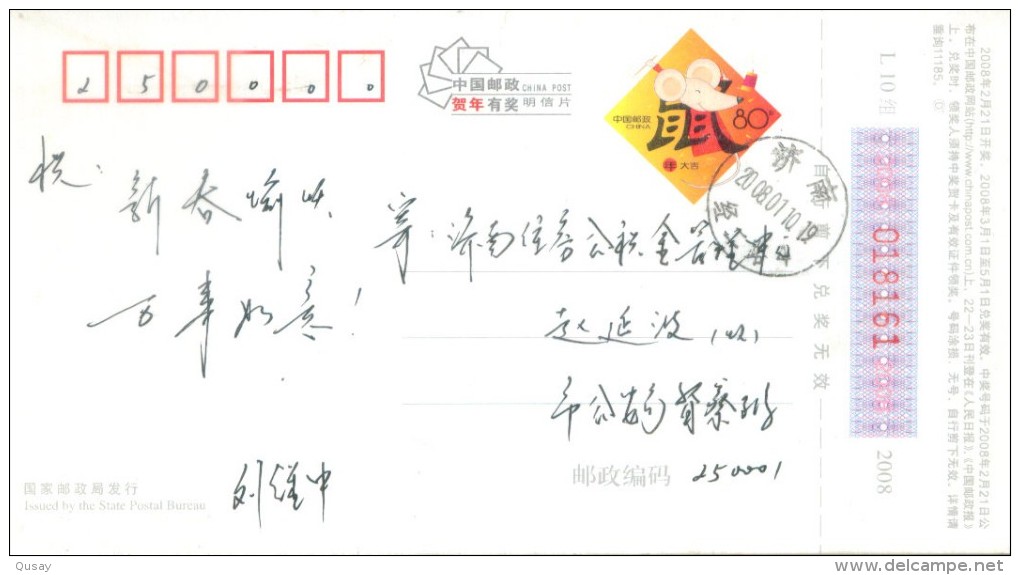 250000
中国邮政 CHINA POST
贺年有奖明信片
中国邮政
CHINA
鼠
80分
大吉
济南
2008.01.10.19
祝:
新春愉快
万事如意!
寄:济南住房公积金管理中心
赵延波(收)
市公安局督察
刘继中
邮政编码 250001
国家邮政局发行
Issued by the State Postal Bureau
自行剪下兑奖无效
L 10组
018161
2008
2008年2月21日开奖。2008年3月1日至5月1日兑奖有效。中奖号码于2008年2月21日公
布在中国邮政网站(http://www.chinapost.com.cn)上,22—23日刊登在《人民日报》、《中国邮政报》
上。兑奖时,领奖人须持中奖贺卡及有效证件领奖。号码涂损、无号、自行剪下无效。详情请
查询11185。
Qusay
delcampe.net